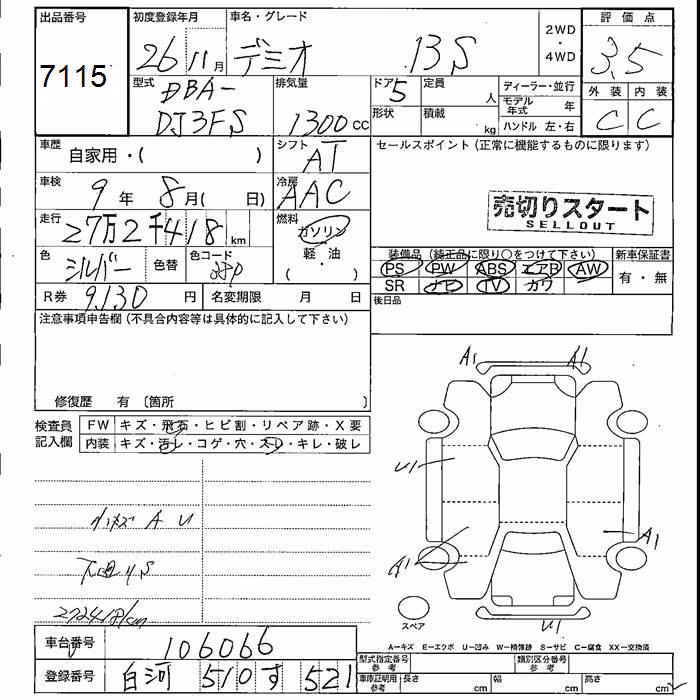 出品番号
7115
初度登録年月
26 11月
車名・グレード
デミオ 13S
2WD
・
4WD
評価点
3.5
外装 内装
C C
型式
DBA-
DJ3FS
排気量
1300cc
ドア 5
形状
定員 人
積載 kg
ディーラー・並行
モデル年式 年
ハンドル 左・右
車歴
自家用・( )
シフト
AT
セールスポイント(正常に機能するものに限ります)
売切りスタート
SELLOUT
車検
9年 8月( 日)
冷房
AAC
走行
27万2千418km
燃料
ガソリン
軽・油
・( )
色
シルバー
色替
色コード
38P
R券 9,130円
名変期限 月 日
装備品(純正品に限り○をつけて下さい)
PS PW ABS エアB AW
SR ナビ TV カワ
新車保証書
有・無
後日品
注意事項申告欄(不具合内容等は具体的に記入して下さい)
修復歴 有〔箇所 〕
検査員記入欄
FW キズ・飛石・ヒビ割・リペア跡・X要
内装 キズ・汚レ・コゲ・穴・スレ・キレ・破レ
A U
下廻りS
272418km
A1 A1
U1
A1 A1
U1
スペア
A-キズ E-エクボ U-凹み W-補修跡 S-サビ C-腐食 XX-交換済
車台番号 106066
登録番号 白河 510 す 521
型式指定番号 参考
類別区分番号 参考
車庫証明用 参考
長さ cm 幅 cm 高さ cm